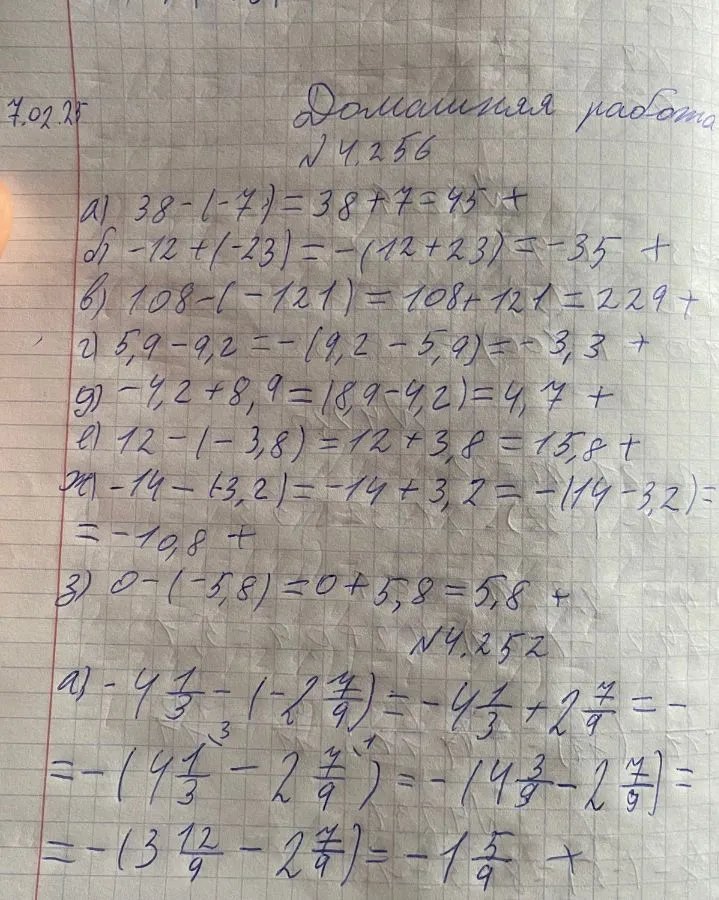 7.02.25 Домашняя работа
№4.256
а) 38-(-7)=38+7=45 +
б) -12+(-23)=-(12+23)=-35 +
в) 108-(-121)=108+121=229 +
г) 5,9-9,2=-(9,2-5,9)=-3,3 +
д) -4,2+8,9=(8,9-4,2)=4,7 +
е) 12-(-3,8)=12+3,8=15,8 +
ж) -14-(-3,2)=-14+3,2=-(14-3,2)=
=-10,8 +
з) 0-(-5,8)=0+5,8=5,8 +
№4.252
а) -4 1/3 - (-2 7/9) = -4 1/3 + 2 7/9 = -
= -(4 1/3 \3 - 2 7/9 \1) = -(4 3/9 - 2 7/9) =
= -(3 12/9 - 2 7/9) = -1 5/9 +